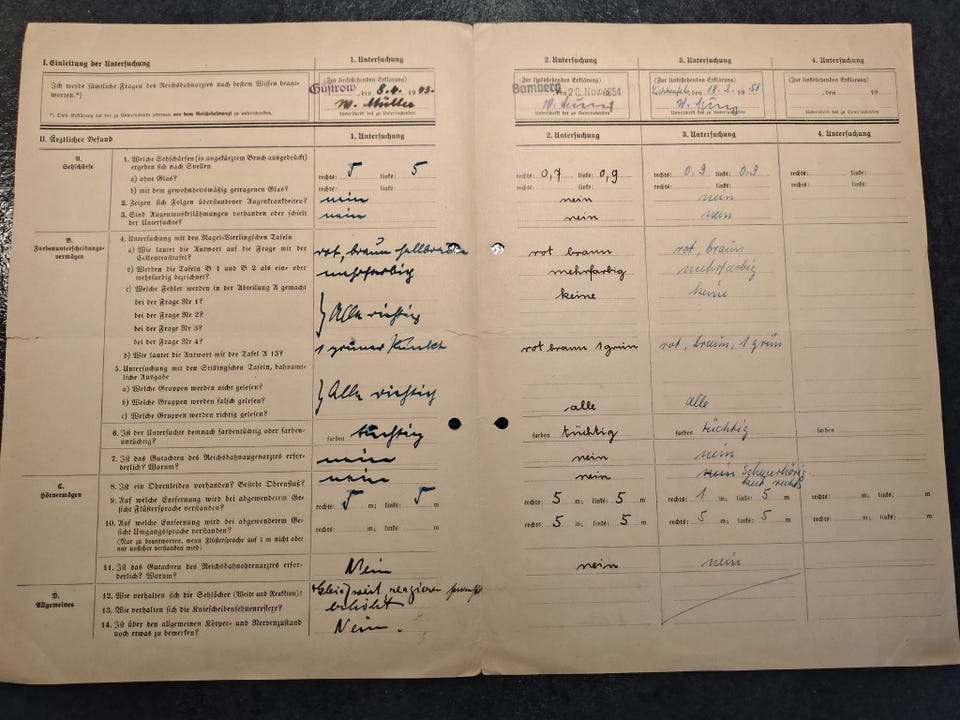 I. Einleitung der Untersuchung
1. Untersuchung
2. Untersuchung
3. Untersuchung
4. Untersuchung
Ich werde sämtliche Fragen des Reichsbahnarztes nach bestem Wissen beant-
worten.*)
*) Diese Erklärung ist der zu Untersuchende vor dem Reichsbahnarzt zu unterschreiben.
(Zur linksstehenden Erklärung)
Güstrow, den 8.4. 1943.
W. Müller
Unterschrift des zu Untersuchenden
(Zur linksstehenden Erklärung)
Bamberg, den 20. Nov. 1954
Unterschrift des zu Untersuchenden
(Zur linksstehenden Erklärung)
Lichtenfels, den 18.2. 1958
Unterschrift des zu Untersuchenden
(Zur linksstehenden Erklärung)
, den 19
Unterschrift des zu Untersuchenden
II. Ärztlicher Befund
1. Untersuchung
2. Untersuchung
3. Untersuchung
4. Untersuchung
A.
Sehschärfe
1. Welche Sehschärfen (in ungekürztem Bruch ausgedrückt)
ergeben sich nach Snellen
a) ohne Glas?
rechts: 5 links: 5
rechts: 0,7 links: 0,9
rechts: 0,9 links: 0,9
rechts: links:
b) mit dem gewohnheitsmäßig getragenen Glas?
rechts: links:
rechts: links:
rechts: links:
rechts: links:
2. Zeigen sich Folgen überstandener Augenkrankheiten?
nein
nein
nein
3. Sind Augenmuskellähmungen vorhanden oder schielt
der Untersuchte?
nein
nein
nein
B.
Farbenunterscheidungs-
vermögen
4. Untersuchung mit den Nagel-Vierlingschen Tafeln
a) Wie lautet die Antwort auf die Frage mit der
rot, braun hellbraun
rot braun
rot, braun
b) Werden die Tafeln B 1 und B 2 als ein- oder
mehrfarbig bezeichnet?
mehrfarbig
mehrfarbig
mehrfarbig
c) Welche Fehler werden in der Abteilung A gemacht
keine
keine
bei der Frage Nr 1?
bei der Frage Nr 2?
bei der Frage Nr 3?
bei der Frage Nr 4?
Alle richtig
d) Wie lautet die Antwort mit der Tafel A 13?
1 grüner Punkt
rot braun 1 grün
rot, braun, 1 grün
5. Untersuchung mit den Stillingschen Tafeln, bahnamt-
liche Ausgabe
a) Welche Gruppen werden nicht gelesen?
b) Welche Gruppen werden falsch gelesen?
c) Welche Gruppen werden richtig gelesen?
Alle richtig
alle
alle
6. Ist der Untersuchte demnach farbentüchtig oder farben-
untüchtig?
farben tüchtig
farben tüchtig
farben tüchtig
farben
7. Ist das Gutachten des Reichsbahnaugenarztes erfor-
derlich? Warum?
nein
nein
nein
C.
Hörvermögen
8. Ist ein Ohrenleiden vorhanden? Besteht Ohrenfluß?
nein
nein
nein Schwerhörig-
keit rechts
9. Auf welche Entfernung wird bei abgewendetem Ge-
sicht Flüstersprache verstanden?
rechts: 5 m; links: 5 m
rechts: 5 m; links: 5 m
rechts: 1 m; links: 5 m
rechts: m; links: m
10. Auf welche Entfernung wird bei abgewendetem Ge-
sicht Umgangssprache verstanden?
(Nur zu beantworten, wenn Flüstersprache auf 1 m nicht oder
nur unsicher verstanden wird)
rechts: m; links: m
rechts: 5 m; links: 5 m
rechts: 5 m; links: 5 m
rechts: m; links: m
11. Ist das Gutachten des Reichsbahnohrenarztes erfor-
derlich? Warum?
Nein
nein
nein
D.
Allgemeines
12. Wie verhalten sich die Sehlöcher (Weite und Reaktion)?
Gleich weit reagieren prompt
13. Wie verhalten sich die Kniescheibensehnenreflexe?
erhöht
14. Ist über den allgemeinen Körper- und Nervenzustand
noch etwas zu bemerken?
Nein.